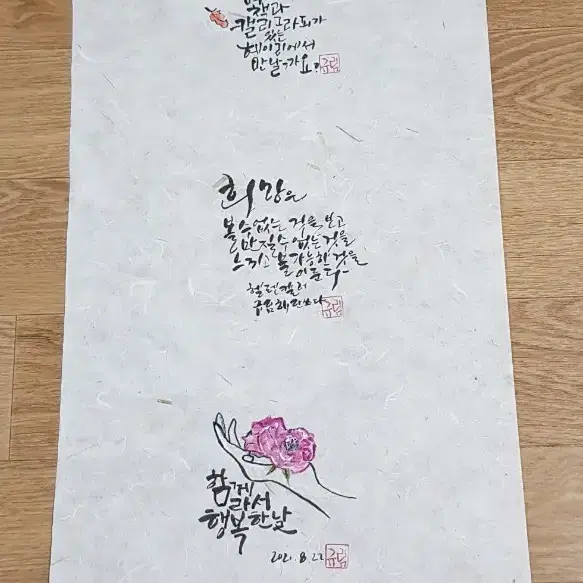 책과
캘리그라피가
있는
헤이리에서
만날까요?
희망은
볼 수 없는 것을 보고
만질 수 없는 것을
느끼고 불가능한 것을
이룬다~
헬렌켈러
규림
함께
라서
행복한 날
2021. 8. 22
규림